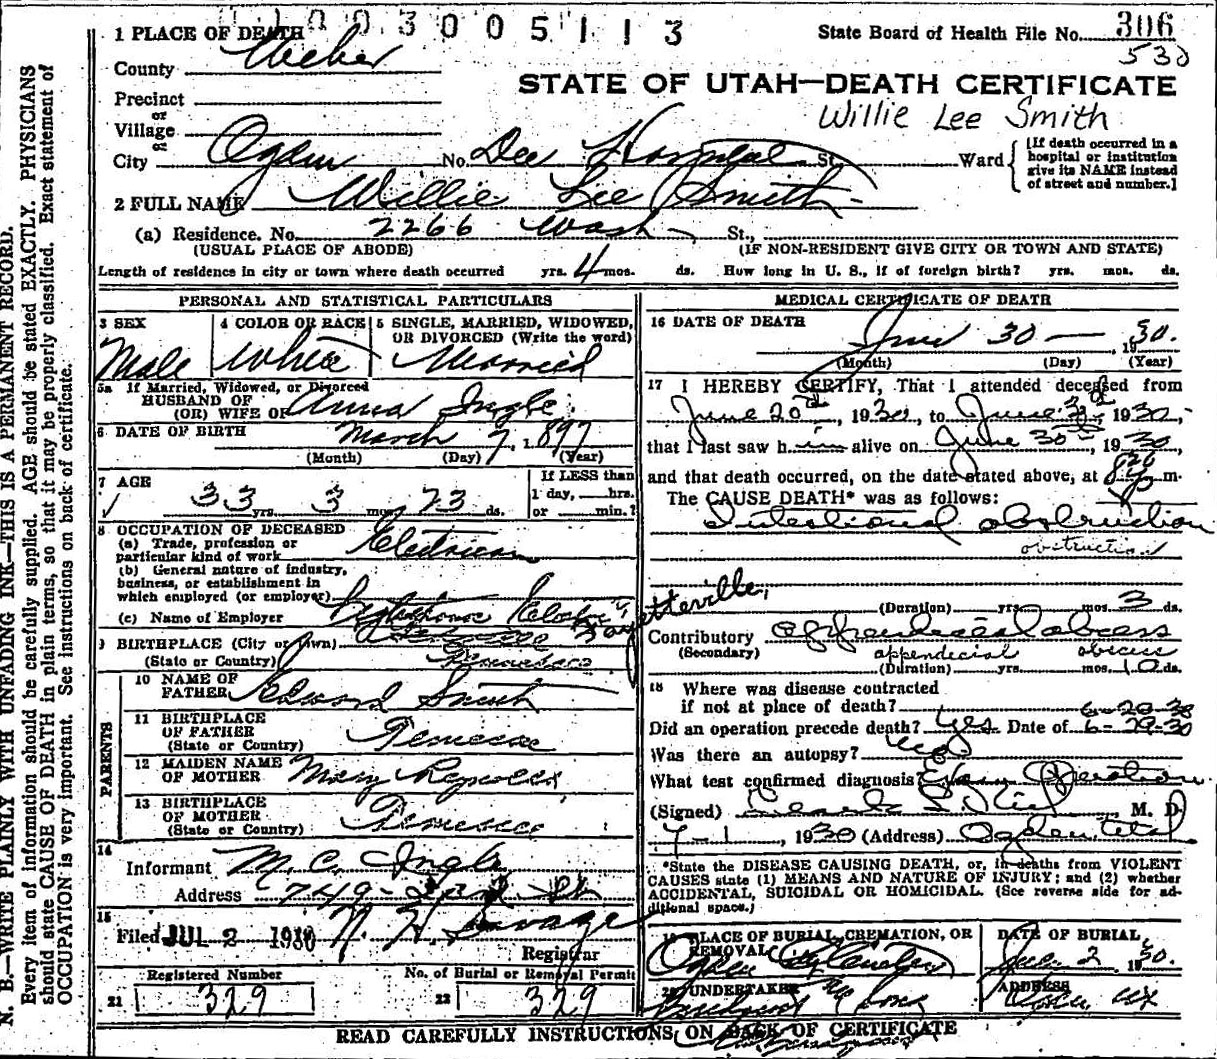 1003005113
1 PLACE OF DEATH
State Board of Health File No. 306
530
County Weber
STATE OF UTAH—DEATH CERTIFICATE
Precinct
or
Village
Willie Lee Smith
or
City Ogden No. Dee Hospital St. Ward
[If death occurred in a hospital or institution give its NAME instead of street and number.]
2 FULL NAME Willie Lee Smith
(a) Residence. No. 2266 Wash St.,
(USUAL PLACE OF ABODE) (IF NON-RESIDENT GIVE CITY OR TOWN AND STATE)
Length of residence in city or town where death occurred yrs. 4 mos. ds. How long in U. S., if of foreign birth? yrs. mos. ds.
PERSONAL AND STATISTICAL PARTICULARS
3 SEX
Male
4 COLOR OR RACE
White
5 SINGLE, MARRIED, WIDOWED,
OR DIVORCED (Write the word)
Married
5a If Married, Widowed, or Divorced
HUSBAND OF
(OR) WIFE OF Anna Ingle
6 DATE OF BIRTH March 7, 1897
(Month) (Day) (Year)
7 AGE
33 yrs. 3 mos. 23 ds.
If LESS than
1 day, hrs.
or min.?
8 OCCUPATION OF DECEASED
(a) Trade, profession or
particular kind of work Electrician
(b) General nature of industry,
business, or establishment in
which employed (or employer)
(c) Name of Employer
9 BIRTHPLACE (City or Town) Fayetteville,
(State or Country) Tennessee
PARENTS
10 NAME OF
FATHER Edward Smith
11 BIRTHPLACE
OF FATHER
(State or Country) Tennessee
12 MAIDEN NAME
OF MOTHER Mary Reynolds
13 BIRTHPLACE
OF MOTHER
(State or Country) Tennessee
14
Informant M. C. Ingle
Address 749
15
Filed JUL 2 1930 N. H. Savage
Registrar
Registered Number
21 329
No. of Burial or Removal Permit
22 329
MEDICAL CERTIFICATE OF DEATH
16 DATE OF DEATH
June 30 — , 1930.
(Month) (Day) (Year)
17 I HEREBY CERTIFY, That I attended deceased from
June 20th, 1930, to June 30, 1930,
that I last saw him alive on June 30th, 1930,
and that death occurred, on the date stated above, at 8 p m.
The CAUSE DEATH* was as follows:
Intestional obstruction
obstruction
(Duration) yrs. mos. 3 ds.
Contributory appendecial abcess
(Secondary) appendecial abcess
(Duration) yrs. mos. 10 ds.
18 Where was disease contracted
if not at place of death?
Did an operation precede death? yes Date of 6-29-30
Was there an autopsy?
What test confirmed diagnosis? Operation
(Signed) M. D
7-1, 1930 (Address) Ogden Utah
*State the DISEASE CAUSING DEATH, or, in deaths from VIOLENT
CAUSES state (1) MEANS AND NATURE OF INJURY; and (2) whether
ACCIDENTAL, SUICIDAL OR HOMICIDAL. (See reverse side for ad-
ditional space.)
19 PLACE OF BURIAL, CREMATION, OR
REMOVAL
Ogden City Cemetery
DATE OF BURIAL
July 2 1930.
20 UNDERTAKER
ADDRESS
READ CAREFULLY INSTRUCTIONS ON BACK OF CERTIFICATE
N. B.—WRITE PLAINLY WITH UNFADING INK—THIS IS A PERMANENT RECORD.
Every item of information should be carefully supplied. AGE should be stated EXACTLY. PHYSICIANS
should state CAUSE OF DEATH in plain terms, so that it may be properly classified. Exact statement of
OCCUPATION is very important. See instructions on back of certificate.